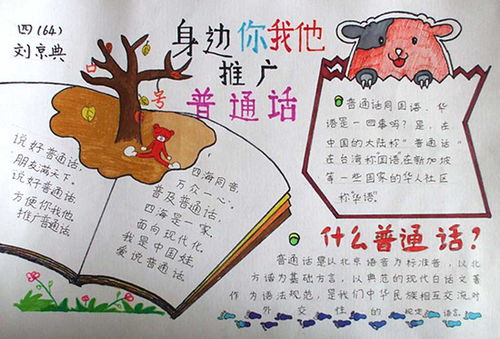 四(64)
刘京典
身边你我他
推广
普通话
口
号
说好普通话,
朋友满天下。
说好普通话
方便你我他
推广普通话
四海同音
万众一心,
普及普通话,
四海是一家。
面向现代化,
我是中国娃,
爱说普通话
普通话同国语、华
语是一回事吗?是,在
中国的大陆称"普通话"
在台湾称国语在新加坡
等一些国家的华人社区
称"华语"
什么普通话?
普通话是以北京语音为标准音,以北
方话为基础方言,以典范的现代白话文著
作为语法规范,是我们中华民族相互交流对
外交性的规定语言